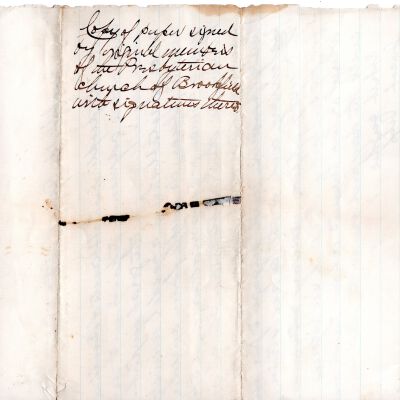 Copy of paper signed
by original members
of the Presbyterian
Church of Brookfield
with signatures thereto